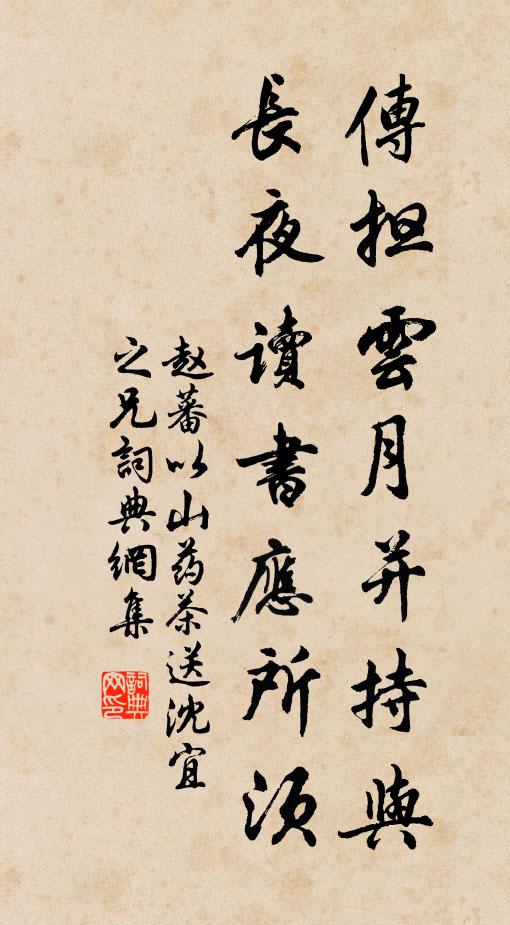 傳担雲月并持與
長夜讀書應所須
赵蕃以山药茶送沈宜
之兄詞典網集
詞典网印